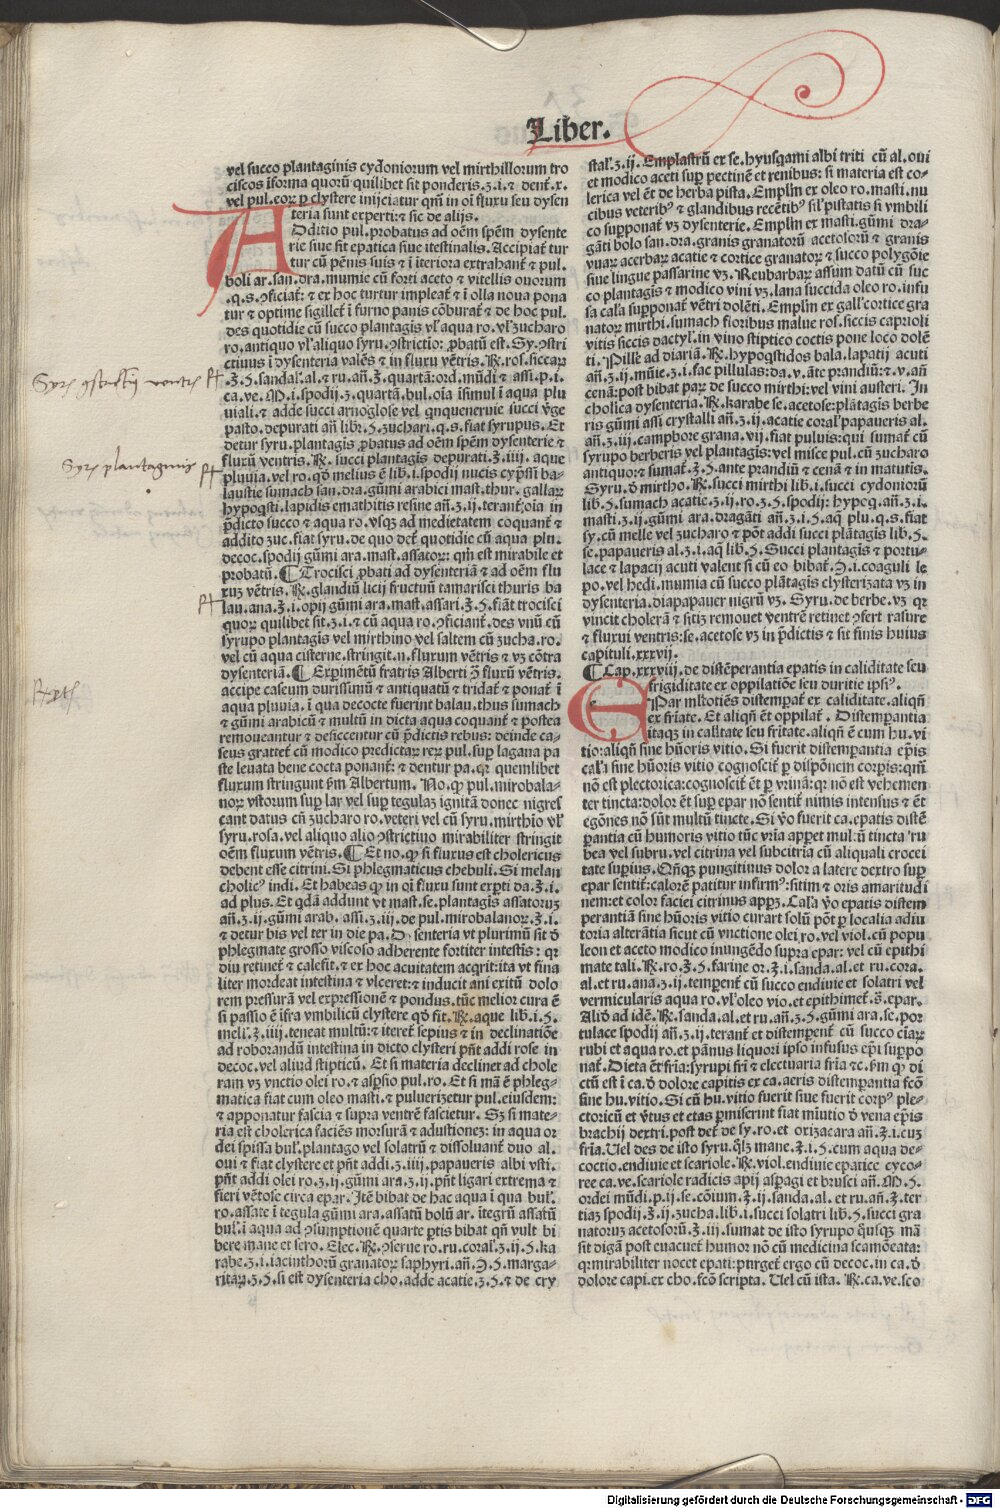 Liber.
vel succo plantaginis cydoniorum vel mirthillorum tro
ciscos īforma quorū quilibet sit ponderis.ʒ.i.⁊ dent̄.x.
vel pul.eoꝝ ꝑ clystere inijciatur qm̄ in oī fluxu seu dysen
teria sunt experti:⁊ sic de alijs.
Additio pul.ꝓbatus ad oēm spēm dysente
rie siue sit epatica siue itestinalis. Accipiat̄ tur
tur cū pēnis suis ⁊ ī iteriora extrahant̄ ⁊ pul.
boli ar.san.dra.mumie cū forti aceto ⁊ vitellis ouorum
.q.s.ꝯficiat̄: ⁊ ex hoc turtur impleat̄ ⁊ ī olla noua pona
tur ⁊ optime sigillet̄ ī furno panis cōburat̄ ⁊ de hoc pul.
des quotidie cū succo plantagis vl' aqua ro.vl' zucharo
ro.antiquo vl' aliquo syru.ꝯstrictio: ꝓbatū est. Sy.ꝯstri
ctiuus ī dysenteria valēs ⁊ in fluxu vētris. ℞.ros.siccaꝝ
.ʒ.5.sandal'.al.⁊ ru.añ.ʒ.quartā:ord.mūdi ⁊ assi.p.i.
ca.ve.M.i.spodij.ʒ.quartā.bul.oīa isimul ī aqua plu
uiali.⁊ adde succi arnoglose vel qnquenernie succi v̄ge
pasto.depurati añ libr.5.zuchari.q.s.fiat syrupus. Et
detur syru.plantagis ꝓbatus ad oēm spēm dysenterie ⁊
fluxū ventris. ℞.succi plantagis depurati.ʒ.iiij.aque
pluuia.vel ro.qd̄ melius ē lib.i.spodij nucis cyp̄ssi ba
laustie sumach san.dra.gūmi arabici mast.thur.gallaꝝ
hypoqsti.lapidis emathitis resine añ.ʒ.ij.terant̄:oīa in
p̄dicto succo ⁊ aqua ro.vsqꝫ ad medietatem coquant̄ ⁊
addito zuc.fiat syru.de quo det̄ quotidie cū aqua plu.
decoc.spodij gūmi ara.mast.assatoꝝ: qm̄ est mirabile et
probatū. ¶Trocisci ꝓbati ad dysenteriā ⁊ ad oēm flu
xuꝫ vētris. ℞.glandiū licij fructuū tamarisci thuris ba
lau.ana.ʒ.i.opij gūmi ara.mast.assari.ʒ.5.fiāt trocisci
quoꝝ quilibet sit.ʒ.i.⁊ cū aqua ro.ꝯficiant̄.des vnū cū
syrupo plantagis vel mirthino vel saltem cū zucha.ro.
vel cū aqua cisterne.stringit.n.fluxum vētris ⁊ vꝫ cōtra
dysenteriā. ¶Exꝑimētū fratris Alberti ꝯ̄ fluxū vētris.
accipe caseum durissimū ⁊ antiquatū ⁊ tridat̄ ⁊ ponat̄ ī
aqua pluuia.ī qua decocte fuerint balau.thus sumach
⁊ gūmi arabicū ⁊ multū in dicta aqua coquant̄ ⁊ postea
remoueantur ⁊ desiccentur cū p̄dictis rebus: deinde ca
seus grattet̄ cū modico predictaꝝ reꝝ pul.suꝑ lagana pa
ste leuata bene cocta ponant̄: ⁊ dentur pa.qꝛ quemlibet
fluxum stringunt ẜm Albertum. No.ꝙ pul.mirobala
noꝝ vstorum suꝑ lar vel suꝑ tegulaꝫ ignitā donec nigres
cant datus cū zucharo ro.veteri vel cū syru.mirthio vl'
syru.rosa.vel aliquo alio ꝯstrictino mirabiliter stringit
oēm fluxum vētris. ¶Et no.ꝙ si fluxus est cholericus
debent esse citrini. Si phlegmaticus chebuli. Si melan
cholicꝰ indi. Et habeas ꝙ in oī fluxu sunt exꝑti da.ʒ.i.
ad plus. Et qdā addunt vt mast.se.plantagis assatoruꝫ
añ.ʒ.ij.gūmi arab.assi.ʒ.iij.de pul.mirobalanoꝝ.ʒ.i.
⁊ detur bis vel ter in die pa. Dysenteria vt plurimū fit ꝺ̄
phlegmate grosso viscoso adherente fortiter intestis: qꝛ
diu retinet̄ ⁊ calefit.⁊ ex hoc acuitatem acqrit:ita vt fina
liter mordeat intestina ⁊ vlceret:⁊ inducit ani exitū dolo
rem pressurā vel expressionē ⁊ pondus.tūc melior cura ē
si passio ē ifra vmbilicū clystere qd̄ fit. ℞.aque lib.i.5.
mell'.ʒ.iiij.teneat multū:⁊ iteret̄ sepius ⁊ in declinatiōe
ad roborandū intestina in dicto clysteri pn̄t addi rose in
decoc.vel aliud stipticū. Et si materia declinet ad chole
ram vꝫ vnctio olei ro.⁊ asꝑsio pul.ro. Et si mā ē phleg-
matica fiat cum oleo masti.⁊ puluerizetur pul.eiusdem:
⁊ apponatur fascia ⁊ supra ventrē fascietur. Sꝫ si mate-
ria est cholerica faciēs morsurā ⁊ adustioneꝫ: in aqua or
dei spissa bul'.plantago vel solatrū ⁊ dissoluant̄ duo al.
oui ⁊ fiat clystere et pn̄t addi.ʒ.iiij.papaueris albi vsti.
pn̄t addi olei ro.ʒ.ij.gūmi ara.ʒ.ij.pn̄t ligari extrema ⁊
fieri vētose circa epar. Itē bibat de hac aqua ī qua bul'.
ro.assate ī tegula gūmi ara.assatū bolū ar.itegrū assatū
bul'.ī aqua ad ꝯsumptionē quarte ꝑtis bibat qn̄ vult bi
bere mane et sero. Elec. ℞.ꝯserue ro.ru.coral'.ʒ.ij.5.ka
rabe.ʒ.i.iacinthorū granatoꝝ saphyri.añ.Ə.5.marga-
ritaꝝ.ʒ.5.si est dysenteria cho.adde acatie.ʒ.5.⁊ de cry
stal'.ʒ.ij. Emplastrū ex se.hyusqami albi triti cū al.oui
et modico aceti suꝑ pectinē et renibus: si materia est co-
lerica vel ēt de herba pista. Emplm̄ ex oleo ro.masti.nu
cibus veteribꝰ ⁊ glandibus recētibꝰ sil' pistatis si vmbili
co supponat̄ vꝫ dysenterie. Emplm̄ ex masti.gūmi dra-
gāti bolo san.dra.granis granatorū acetosorū ⁊ granis
vuaꝝ acerbaꝝ acatie ⁊ cortice granatoꝝ ⁊ succo polygōie
siue lingue passarine vꝫ. Reubarbaꝝ assum datū cū suc
co plantagis ⁊ modico vini vꝫ.lana succida oleo ro.infu
sa cal'a supponat̄ vētri dolēti. Emplm̄ ex gall' cortice gra
natoꝝ mirthi.sumach floribus malue ros.siccis caprioli
vitis siccis dactyl'.in vino stiptico coctis pone loco dolē
ti. Pille ad diariā. ℞.hypoqstidos bala.lapatij acuti
añ.ʒ.ij.mūie.ʒ.i.fac pillulas:da.v.āte prandiū:⁊ v.añ
cenā:post bibat paꝝ de succo mirthi:vel vini austeri. In
cholica dysenteria. ℞.karabe se.acetose:plātagis berbe
ris gūmi assi crystalli añ.ʒ.ij.acatie coral' papaueris al.
añ.ʒ.iij.camphore grana.vij.fiat puluis:qui sumat̄ cū
syrupo berberis vel plantagis:vel misce pul.cū zucharo
antiquo:⁊ sumat̄.ʒ.5.ante prandiū ⁊ cenā ⁊ in matutis.
Syru.ꝺ̄ mirtho. ℞.succi mirthi lib.i.succi cydoniorū
lib.5.sumach acatie.ʒ.ij.ro.ʒ.5.spodij: hypoq.añ.ʒ.i.
masti.ʒ.ij.gūmi ara.dragāti añ.ʒ.i.5.aq̄ plu.q.s.fiat
sy.cū melle vel zucharo ⁊ pōt addi succi plātagis lib.5.
se.papaueris al.ʒ.i.aq̄ lib.5. Succi plantagis ⁊ portu-
lace ⁊ lapacij acuti valent si cū eo bibat̄.ʒ.i.coaguli le
po.vel hedi.mumia cū succo plātagis clysterizata vꝫ in
dysenteria.diapapauer nigrū vꝫ. Syru.de berbe.vꝫ qꝛ
vincit cholerā ⁊ sitiꝫ remouet ventrē retinet ꝯfert rasure
⁊ fluxui ventris:se.acetose vꝫ in p̄dictis ⁊ sit finis huius
capituli.xxxvij.
¶Cap.xxxviij.de distēperantia epatis in caliditate seu
frigiditate ex oppilatiōe seu duritie ipsiꝰ.
Epar ml'totiēs distemperat̄ ex caliditate.aliqn̄
ex fr'iate. Et aliqn̄ ēt oppilat̄. Distemperantia
itaqꝫ in cal'itate seu fritate.aliqn̄ ē cum hu.vi
tio:aliqn̄ sine hūoris vitio. Si fuerit distemperantia ep̄is
cal'i sine hūoris vitio cognoscit̄ ꝑ dispōnem corpis:qm̄
nō est plectorica:cognoscit̄ ēt ꝑ vrinā: qꝛ nō est vehemen
ter tincta:dolor ēt suꝑ epar nō sentit̄ nimis intensus ⁊ ēt
egōnes nō sūt multū tincte. Si v̄o fuerit ca.epatis distē
ꝑantia cū humoris vitio tūc vrīa apꝑet mul:ū tincta :ru
bea vel subru.vel citrina vel subcitria cū aliquali crocei
tate suꝑius. Qn̄qꝫ pungitiuus dolor a latere dextro suꝑ
epar sentit̄:calorē patitur infirmꝰ:sitim ⁊ oris amaritudi
nem:et color faciei citrinus apꝑꝫ. Cal'a v̄o epatis distem
perantia sine hūoris vitio curat̄ solū pōt ꝑ localia adiu
toria alterātia sicut cū vnctione olei ro.vel viol.cū popu
leon et aceto modico inungēdo supra epar: vel cū epithi
mate tali. ℞.ro.ʒ.5.farine or.ʒ.i.sanda.al.et ru.cora.
al.et ru.ana.ʒ.ij.temꝑent̄ cū succo endiuie et solatri vel
vermicularis aqua ro.vl' oleo vio.et epithimet̄.s̄.epar.
Aliꝺ̄ ad idē. ℞.sanda.al.et ru.añ.ʒ.5.gūmi ara.se.por
tulace spodij añ.ʒ.ij.terant̄ et distemꝑent̄ cū succo ciaꝝ
rubi et aqua ro.et pānus liquori ipso infusus epi suppo
nat̄. Dieta ēt fria:syrupi fri ⁊ electuaria fria ⁊c.ẜm ꝙ di
ctū est ī ca.ꝺ̄ dolore capitis ex ca.aeris distemꝑantia fcō
sine hu.vitio. Si cū hu.vitio fuerit siue fuerit corpꝰ ple-
ctoricū et v̄tus et etas ꝑmiserint fiat mīutio ꝺ̄ vena ep̄is
brachij dextri.post det̄ de sy.ro.et orizacara añ.ʒ.i.cuꝫ
fria. Vel des de isto syru.ql'ʒ mane.ʒ.i.5.cum aqua de-
coctio.endiuie et scariole. ℞.viol.endiuie epatice cyco-
ree ca.ve.scariole radicis apij asꝑagi et brusci añ.M.5.
ordei mūdi.p.ij.se.cōium.ʒ.ij.sanda.al.et ru.añ.ʒ.ter
tiaꝫ spodij.ʒ.ij.zucha.lib.i.succi solatri lib.5.succi gra
natoruꝫ acetosorū.ʒ.iij.sumat de isto syrupo qusqꝫ mā
sit digā post euacuet̄ humor nō cū medicina scamōeata:
qꝛ mirabiliter nocet epati:purget̄ ergū cū decoc.in ca.ꝺ̄
dolore capi.ex cho.fcō scripta. Vel cū ista. ℞.ca.ve.sco
Syrꝰ ꝯstrictiꝰ ventris
Syrꝰ plantaginis
Digitalisierung gefördert durch die Deutsche Forschungsgemeinschaft - DFG